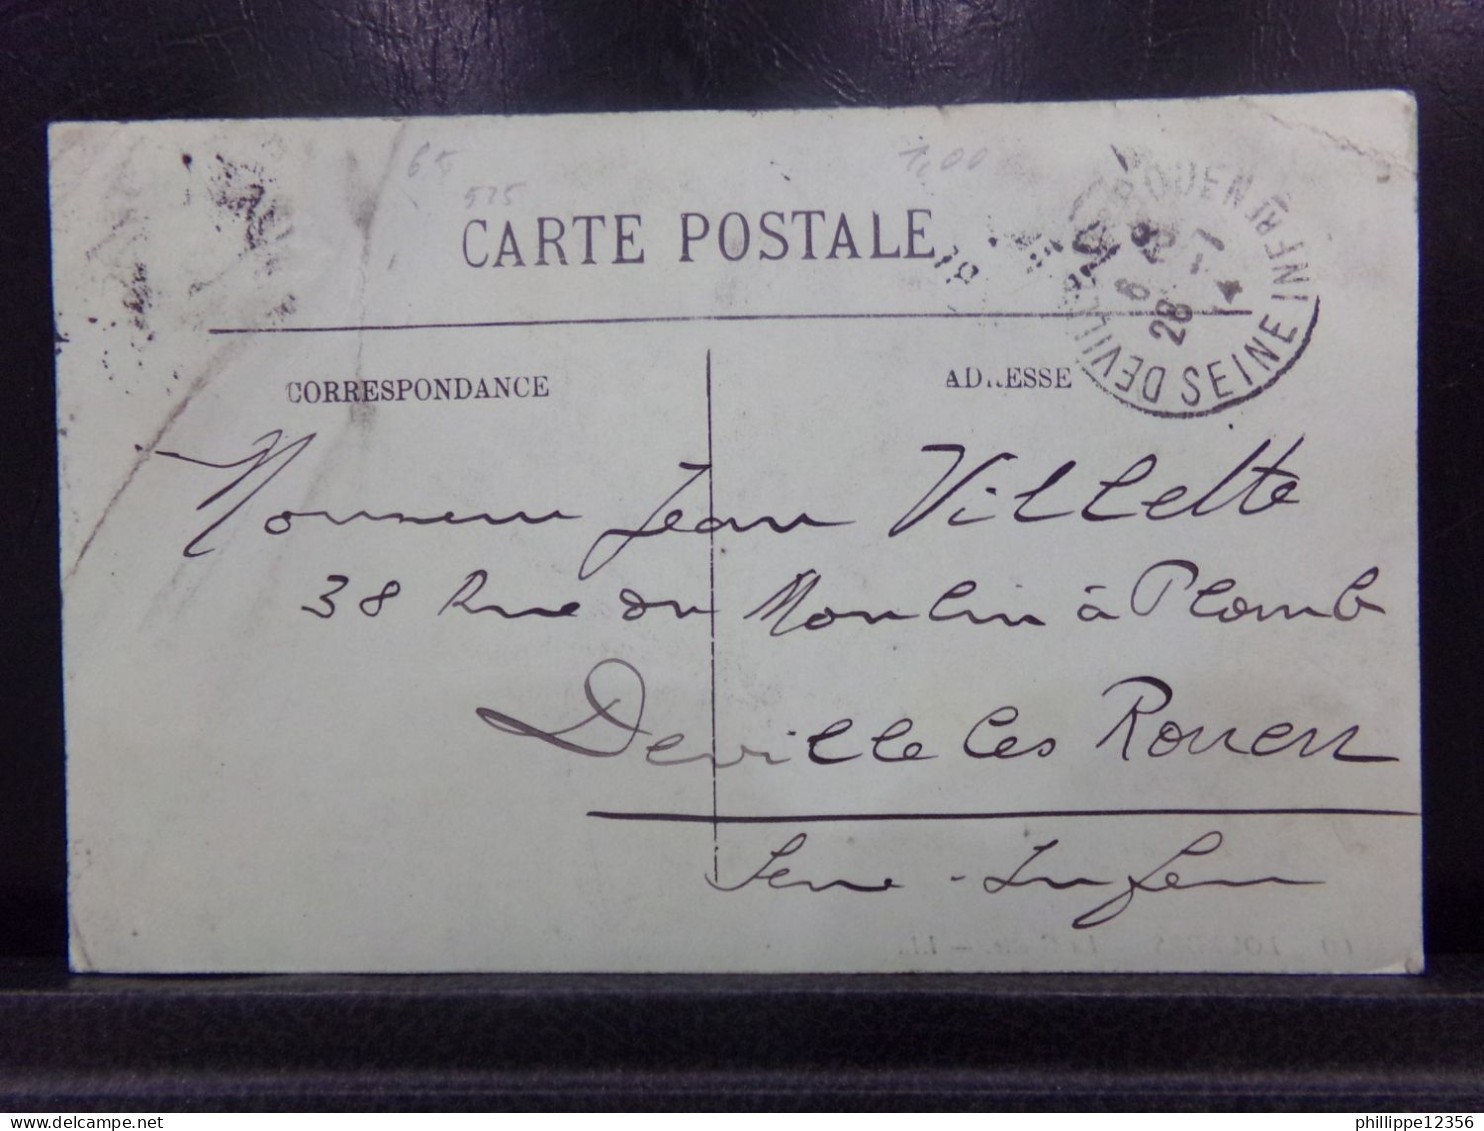 65
525
1,00
CARTE POSTALE
DEVILLE ROUEN
SEINE INFRE
28
CORRESPONDANCE
ADRESSE
Monsieur Jean Villette
38 Rue du Moulin à Plomb
Deville les Rouen
Seine-Infer
philippe12356